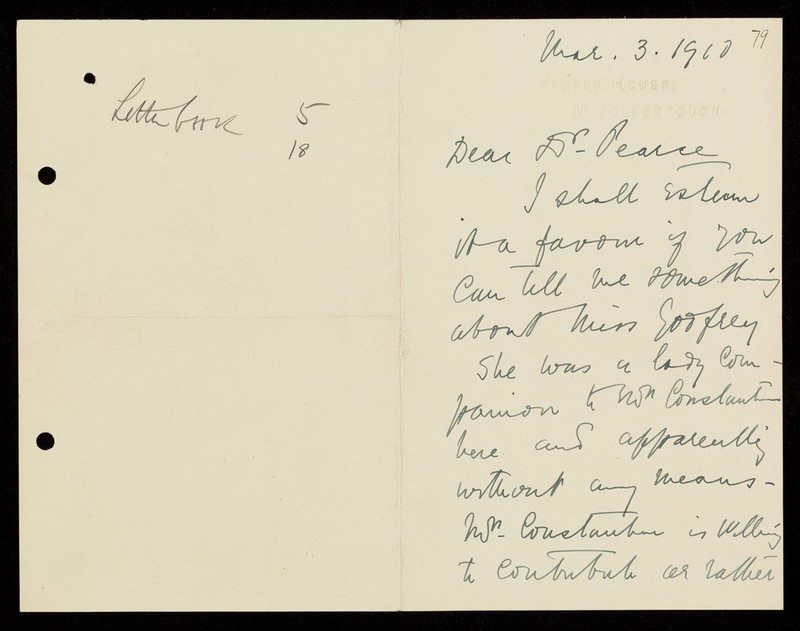 Letter book 5
18
79
Mar. 3. 1910
HOUSE,
MIDDLESBROUGH.
Dear Dr. Pearce
I shall esteem
it a favour if you
can tell me something
about Miss Godfrey
She was a lady Com-
panion to Mrs Constantine
here and apparently
without any means-
Mrs. Constantine is willing
to contribute or rather